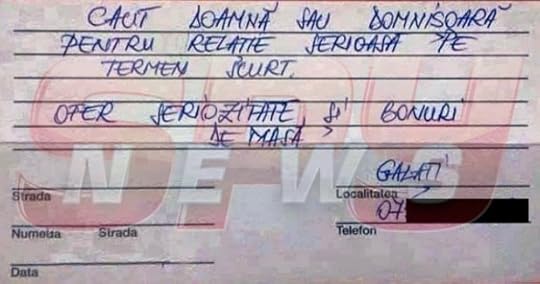 CAUT DOAMNĂ SAU DOMNIȘOARĂ
PENTRU RELATIE SERIOASA PE
TERMEN SCURT.
OFER SERIOZITATE, SI BONURI
DE MASĂ
SPY
NEWS
GALATI
Strada
Localitatea
07
Numelua Strada
Telefon
Data